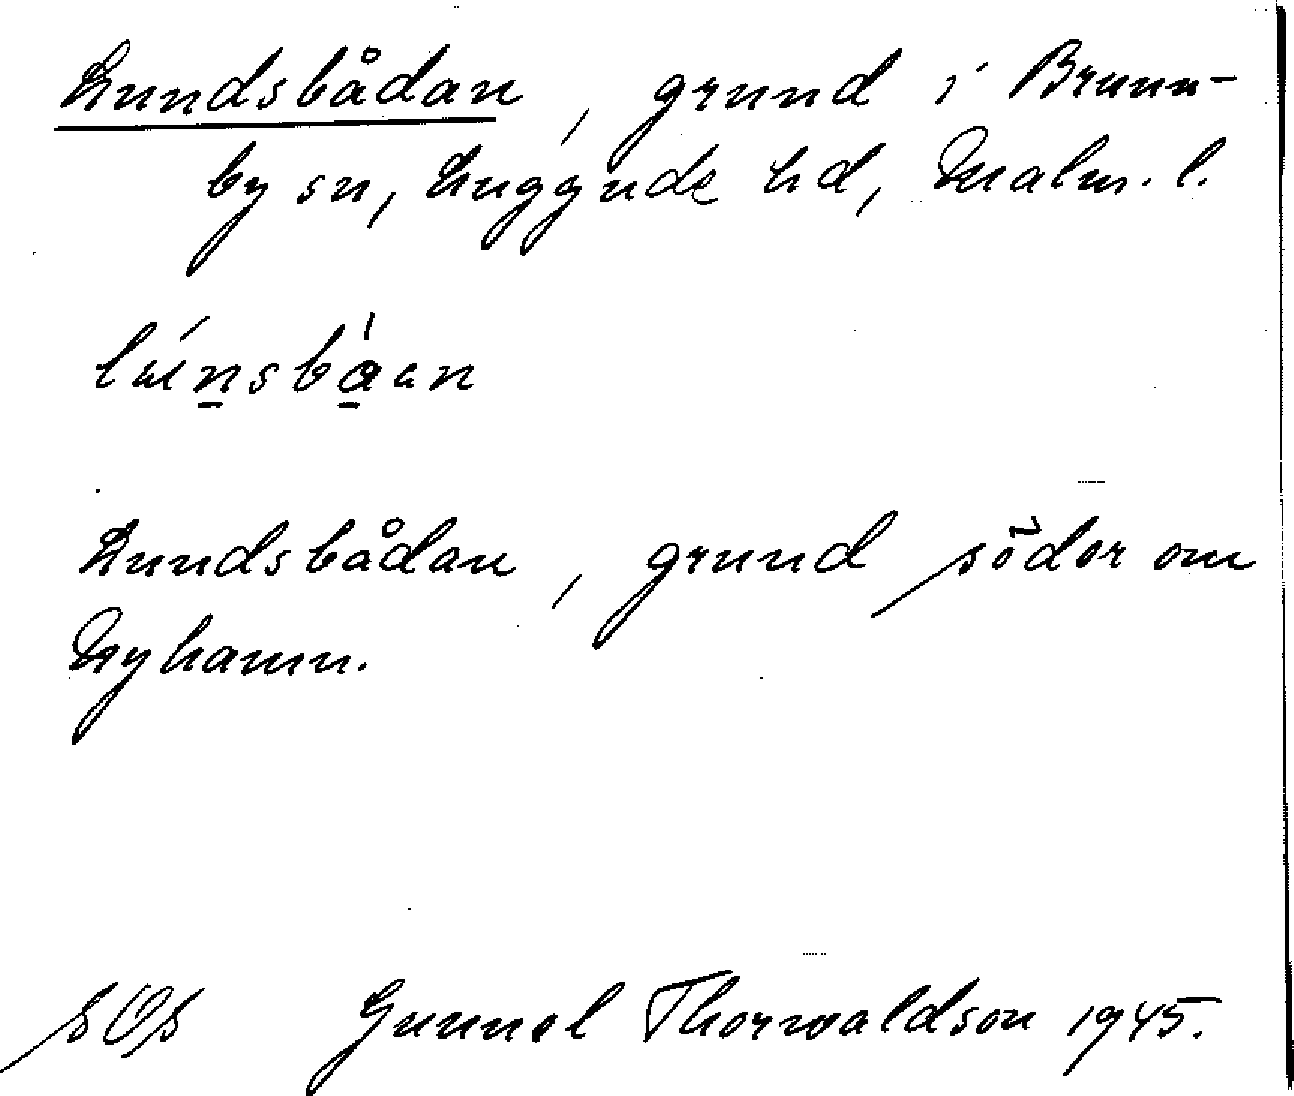 Lundsbådan, grund i Brunn-
by sn, Luggude hd, Malm. l.
Lundsbådan, grund söder om
Nyhamn.
Gunnel Thorwaldson 1945.